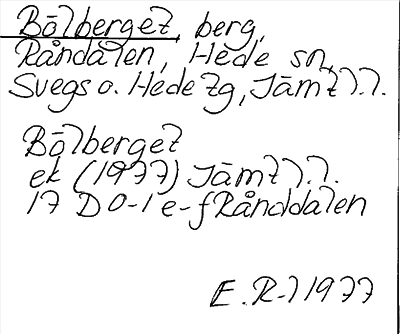 Bölberget, berg,
Råndalen, Hede sn,
Svegs o. Hede tg, Jämtl.l.
Bölberget
ek (1977) Jämtl.l.
17 D 0-1 e-f Rånddalen
E.R-l 1977